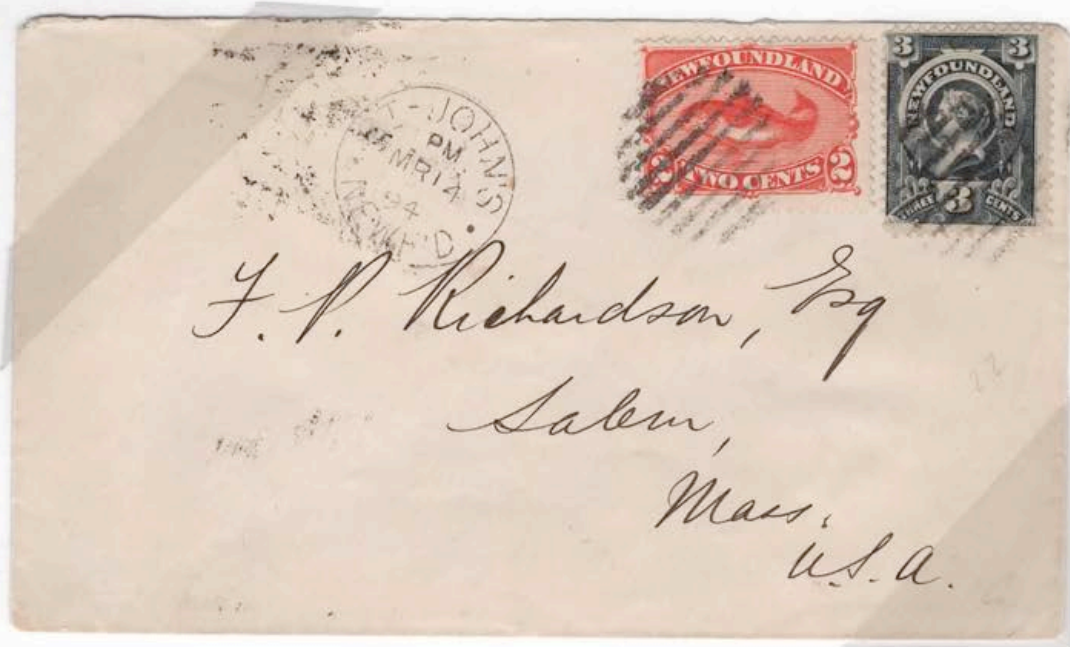 ST. JOHN'S
PM
MR 14
94
NEWF'D
NEWFOUNDLAND
2 TWO CENTS 2
3 3
NEWFOUNDLAND
THREE 3 CENTS
F. P. Richardson, Esq
Salem,
Mass.
U.S.A.
22